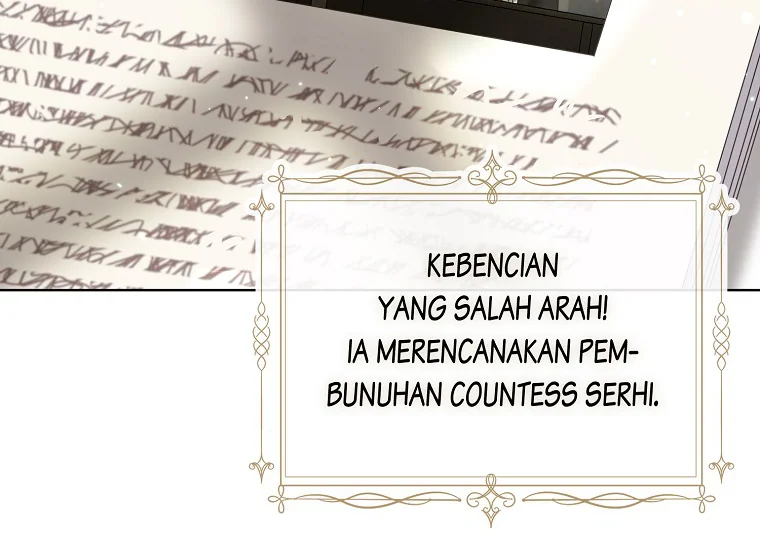 KEBENCIAN
YANG SALAH ARAH!
IA MERENCANAKAN PEM-
BUNUHAN COUNTESS SERHI.